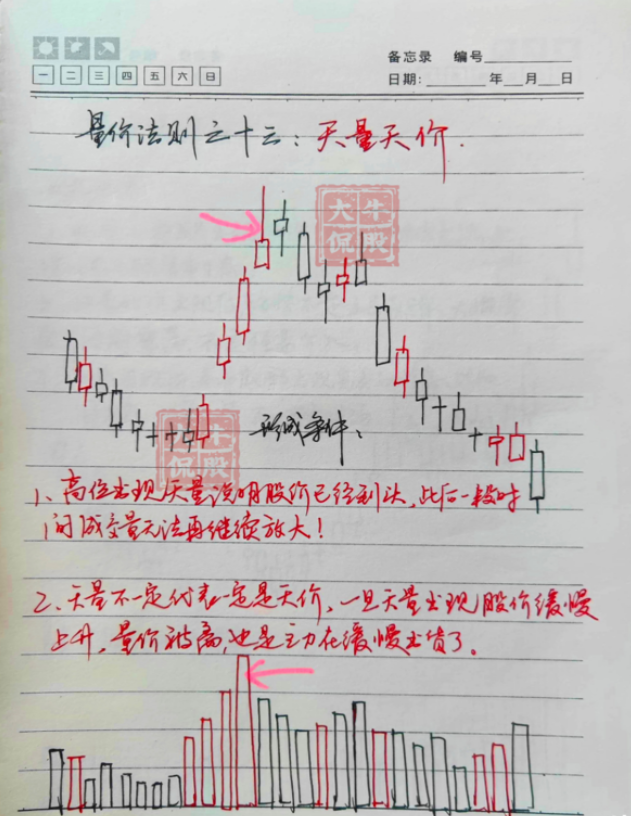 备忘录 编号
一 二 三 四 五 六 日
日期: 年 月 日
量价法则之十三：天量天价.
大牛
侃股
形成条件：
大牛
侃股
1、高位出现天量说明股价已经到头，此后一段时
间成交量无法再继续放大！
2、天量不一定代表一定是天价，一旦天量出现股价缓慢
上升，量价背离，也是主力在缓慢出货了。